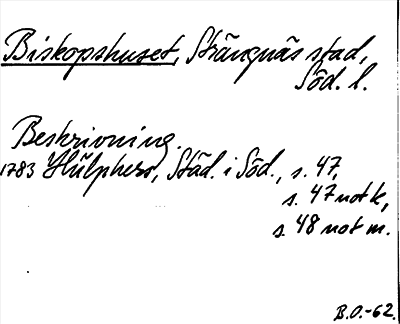 Biskopshuset, Strängnäs stad,
Söd. l.
Beskrivning.
1783 Hülphers, Städ. i Söd., s. 47,
s. 47 not k,
s. 48 not m.
B.O.-62.